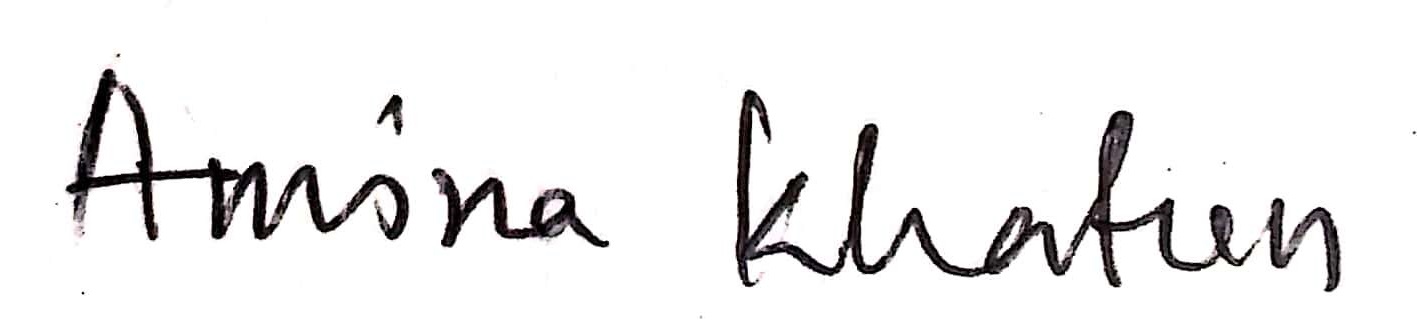 Amina Khatun